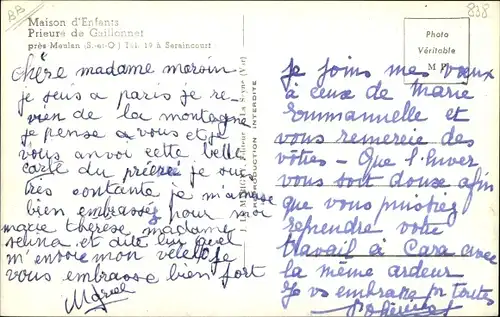 BB
838
Maison d'Enfants
Prieuré de Gaillonnet
près Meulan (S.-et-O.) Tél. 19 à Seraincourt
Photo
Véritable
chère madame moroin
je suis a paris je re-
vien de la montagne
je pense a vous et je
vous anvoi cette belle
carte du prieré je suis
très contante je m'amuse
bien embrassez pour moi
marie thérèse madame
et dite lui quel
m'envoie mon velo je
vous embrasse bien fort
REPRODUCTION INTERDITE
Je joins mes vœux
à ceux de Marie
Emmannuelle et
vous remercie des
vôtres - Que l'hiver
vous soit doux afin
que vous puissiez
reprendre votre
travail à Cara avec
la même ardeur
Je vs embrasse pr toutes